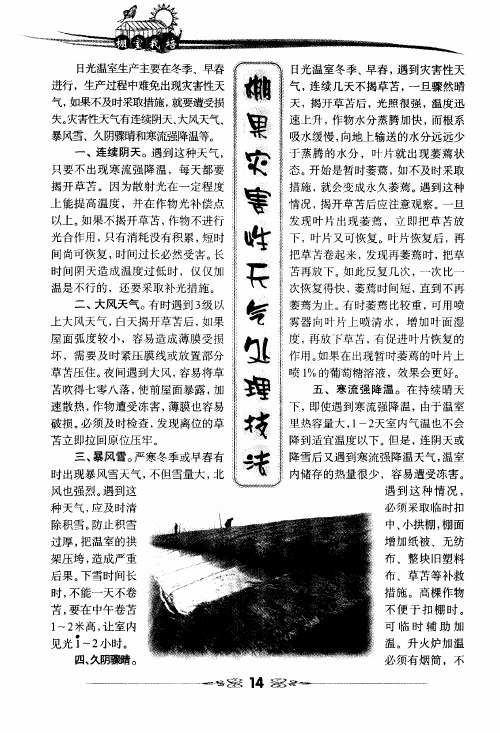 棚室栽培
日光温室生产主要在冬季、早春
进行，生产过程中难免出现灾害性天
气，如果不及时采取措施，就要遭受损
失。灾害性天气有连续阴天、大风天气、
暴风雪、久阴骤晴和寒流强降温等。
一、连续阴天。遇到这种天气，
只要不出现寒流强降温，每天都要
揭开草苫。因为散射光在一定程度
上能提高温度，并在作物光补偿点
以上。如果不揭开草苫，作物不进行
光合作用，只有消耗没有积累，短时
间尚可恢复，时间过长必然受害。长
时间阴天造成温度过低时，仅仅加
温是不行的，还要采取补光措施。
二、大风天气。有时遇到3级以
上大风天气，白天揭开草苫后，如果
屋面弧度较小，容易造成薄膜受损
坏，需要及时紧压膜线或放置部分
草苫压住。夜间遇到大风，容易将草
苫吹得七零八落，使前屋面暴露，加
速散热，作物遭受冻害，薄膜也容易
破损。必须及时检查，发现离位的草
苫立即拉回原位压牢。
三、暴风雪。严寒冬季或早春有
时出现暴风雪天气，不但雪量大，北
风也强烈。遇到这
种天气，应及时清
除积雪。防止积雪
过厚，把温室的拱
架压垮，造成严重
后果。下雪时间长
时，不能一天不卷
苫，要在中午卷苫
1～2米高，让室内
见光1～2小时。
四、久阴骤晴。
棚果灾害性天气处理技法
日光温室冬季、早春，遇到灾害性天
气，连续几天不揭草苫，一旦骤然晴
天，揭开草苫后，光照很强，温度迅
速上升，作物水分蒸腾加快，而根系
吸水缓慢，向地上输送的水分远远少
于蒸腾的水分，叶片就出现萎蔫状
态。开始是暂时萎蔫，如不及时采取
措施，就会变成永久萎蔫。遇到这种
情况，揭开草苫后应注意观察。一旦
发现叶片出现萎蔫，立即把草苫放
下，叶片又可恢复。叶片恢复后，再
把草苫卷起来，发现再萎蔫时，把草
苫再放下。如此反复几次，一次比一
次恢复得快，萎蔫时间短，直到不再
萎蔫为止。有时萎蔫比较重，可用喷
雾器向叶片上喷清水，增加叶面湿
度，再放下草苫，有促进叶片恢复的
作用。如果在出现暂时萎蔫的叶片上
喷1%的葡萄糖溶液，效果会更好。
五、寒流强降温。在持续晴天
下，即使遇到寒流强降温，由于温室
里热容量大，1－2天室内气温也不会
降到适宜温度以下。但是，连阴天或
降雪后又遇到寒流强降温天气，温室
内储存的热量很少，容易遭受冻害。
遇到这种情况，
必须采取临时扣
中、小拱棚，棚面
增加纸被、无纺
布、整块旧塑料
布、草苫等补救
措施。高棵作物
不便于扣棚时。
可临时辅助加
温。升火炉加温
必须有烟筒，不
14